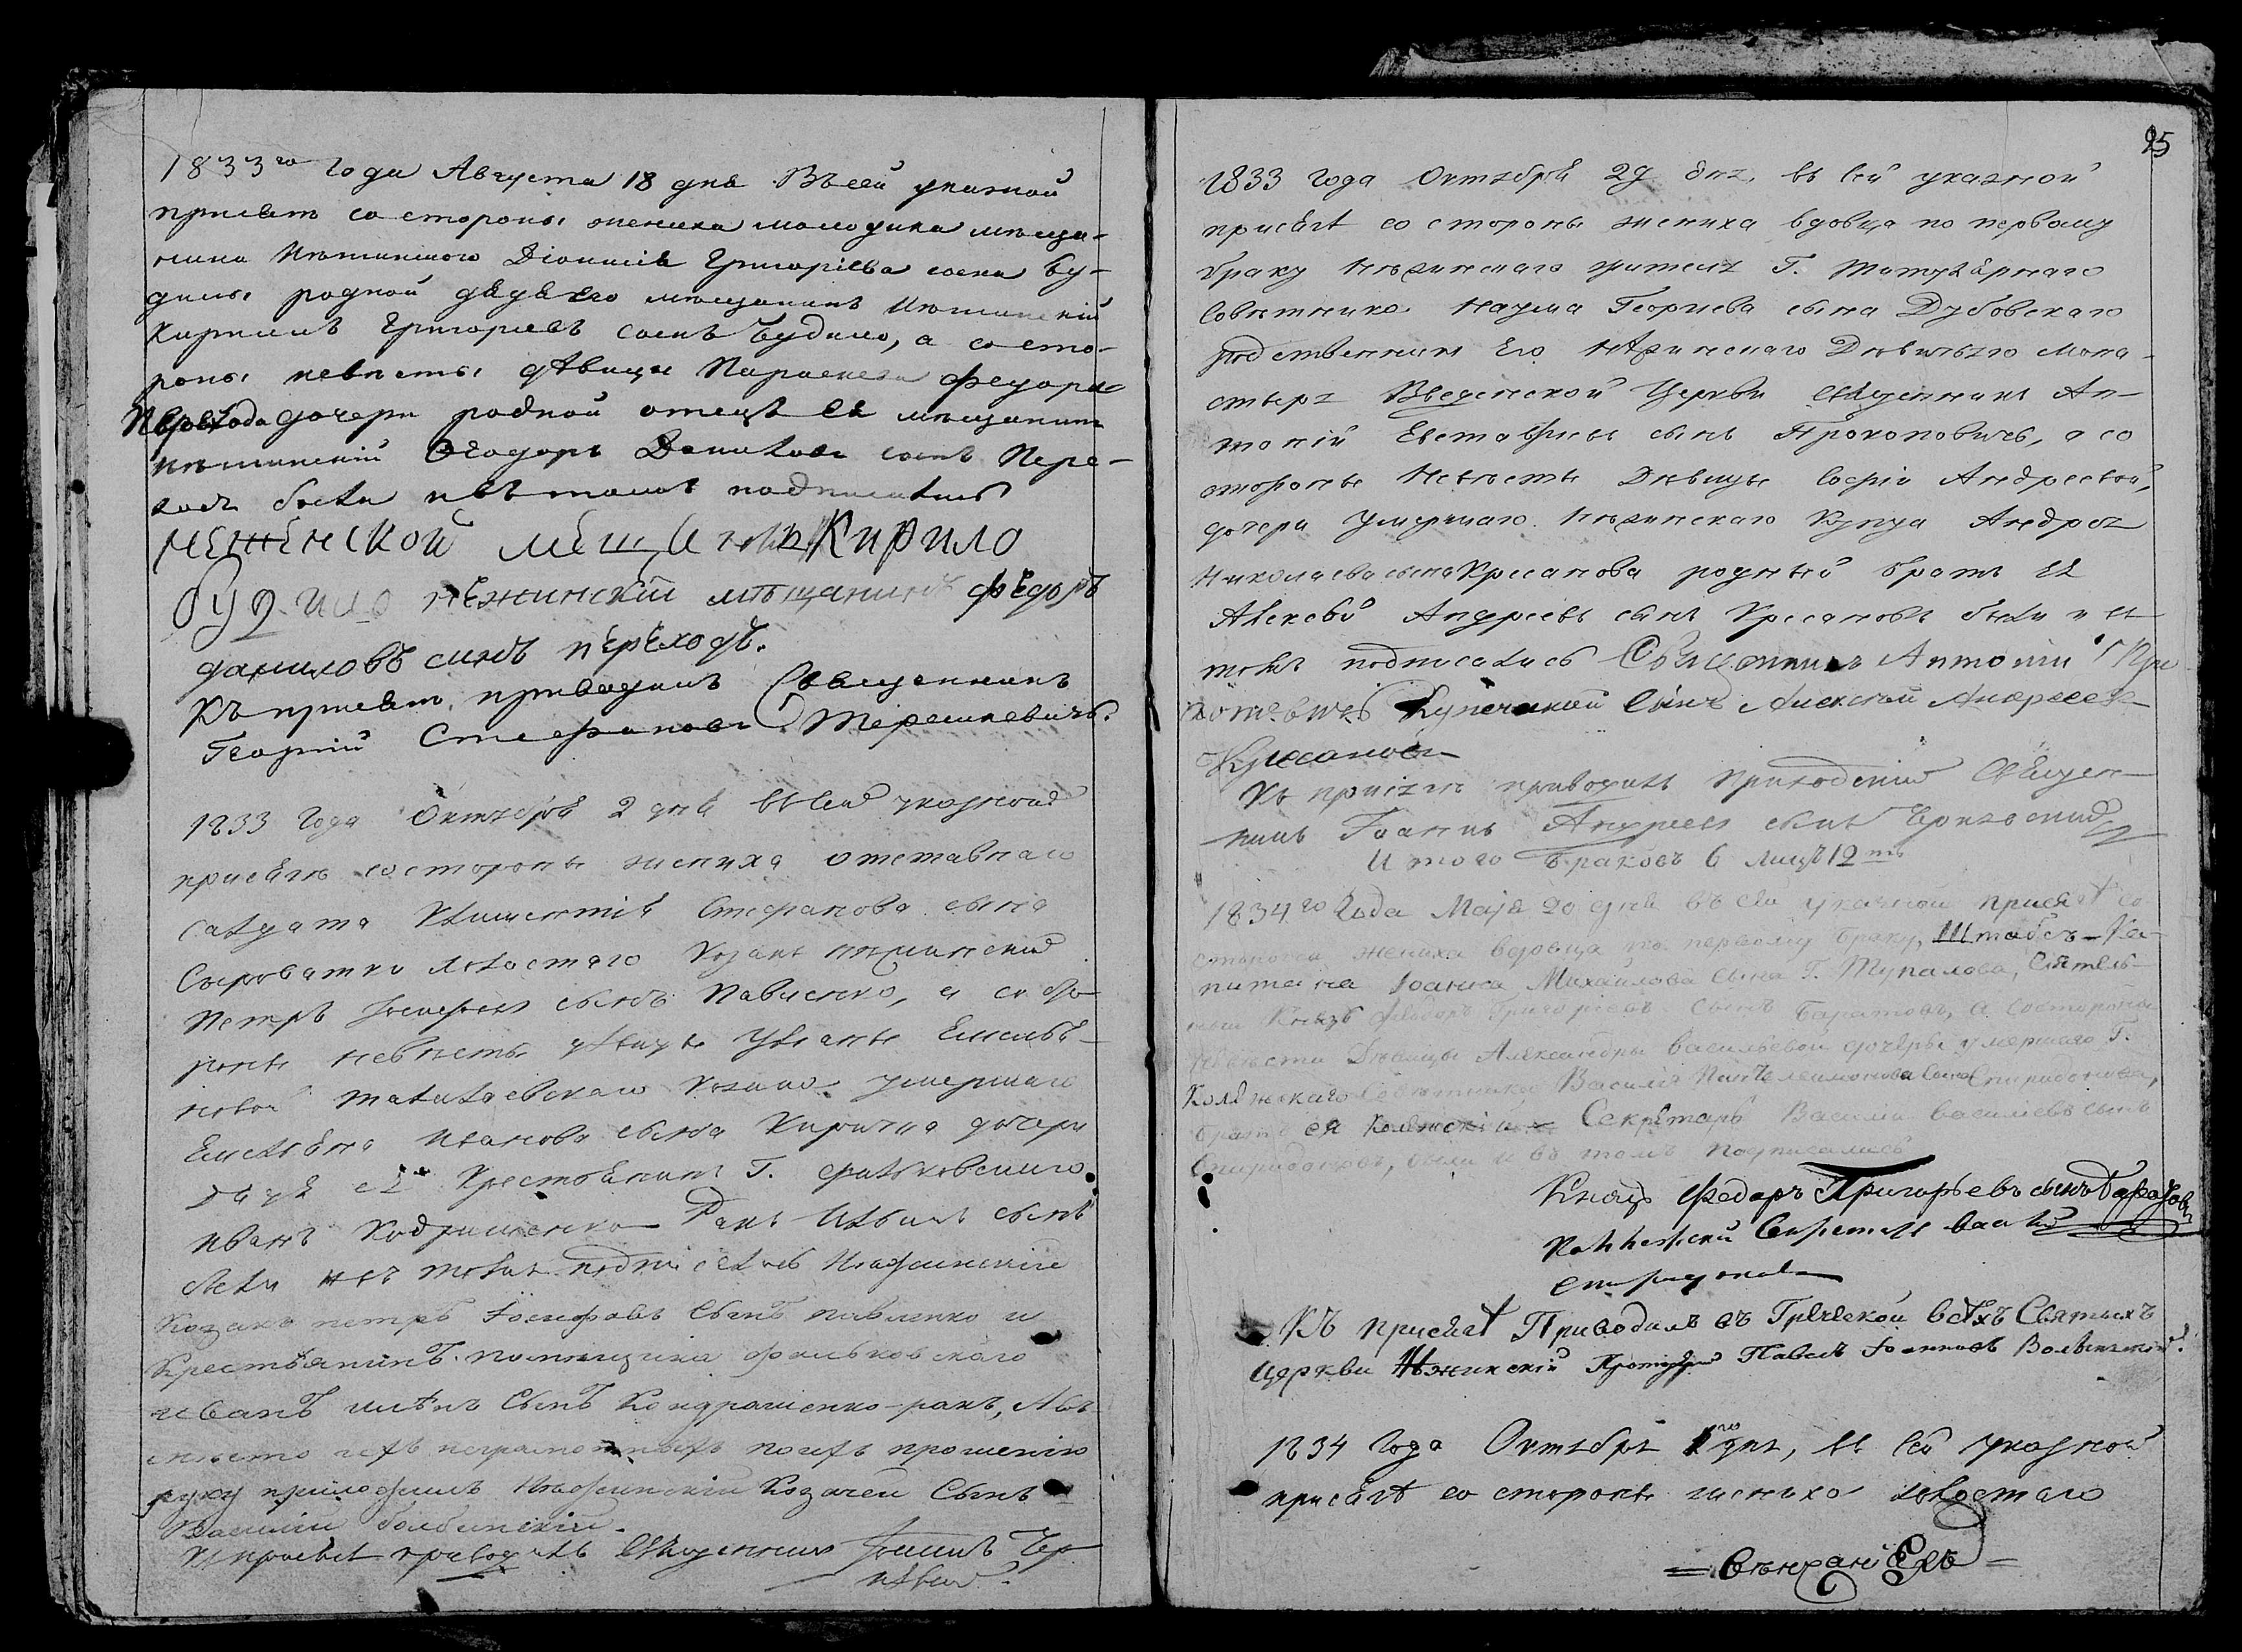 1833го Года Августа 18 дня Въ сей указной
присяги со стороны жениха молодика меща-
нина Нежинского Діонисія Григоріева сына Бу-
дилы родной дядя его мещанинъ Нежинскій
Кирилъ Григориевъ сынъ Будило, а со сто-
роны невесты девицы Параскеви Федоровой
Перехода дочери родной отецъ ея мещанинъ
нежинскій Феодоръ Даниловъ сынъ Пере-
ходъ были и въ томъ подписались
неженской мещанинъ Кирило
Будило нежинскій мещанинъ федоръ
даниловъ синъ переходъ.
Къ присяги приводилъ Священникъ
Георгий Стефановъ Терешкевичъ.
1833 Года Октября 2 дня въ сей указной
присяги со стороны жениха отставнаго
салдата Климентія Стефанова сына
Сыроватки холостаго Козакъ нежинский
Петръ Іосифовъ сынъ Павленко, а со сто-
роны невесты девицы Уляны Емелья-
новой Козака умершаго
Емельяна Иванова сына Кирична дочери
дядя ея Крестьянинъ Г. Фальковскаго
Иванъ Кодрашенко Ракъ Ильинъ сынъ
были и въ томъ подписались Нежинскій
Козакъ петръ Іосифовъ Сынъ павленко и
Крестьянинъ помещика фальковскаго
иванъ илинъ Сынъ Кондрашенко-ракъ, А въ-
место ихъ неграмотныхъ по ихъ прошенію
руку приложилъ Нежинскій Козачей Сынъ
Василій
К присяги приводилъ Священникъ Іоаннъ Чер-
25
1833 года Октября 29 дня, въ сей указной
присяге со стороны жениха вдовца по первому
браку Нежинскаго жителя Г. Титулярнаго
Советника Наума Георгиева сына Дубовскаго
родственникъ Его Нежинскаго Девичьяго мона-
стыря Введенской Церкви Священникъ Ан-
тоній Евстафиевъ сынъ Прокоповичъ, а со
стороны Невесты Девицы Софіи Андреевой,
дочери умершаго Нежинскаго Купца Андрея
Николаева сына Кресанова родный братъ ея
Алексей Андреевъ сынъ Кресановъ были и въ
томъ подписались Священникъ Антоній Про
коповичъ Купеческой Сынъ Алексей Андреевъ
Кресановъ
Къ присяги приводилъ приходскій Священ-
никъ Іоаннъ Андреевъ сынъ
Итого браковъ 6 лицъ 12ть
1834го Года Майя 20 дня въ сей указной присяге со
стороны жениха вдовца по первому браку, Штабсъ-Ка-
питана Іоанна Михайлова сына Г. Тупалова, Сіятель-
ный Князь Феодоръ Григоріевъ Сынъ Баратовъ, а со стороны
Невесты Девицы Александры Васильевой дочери умершаго Г.
Колежскаго Советника Василія Пантелеимонова сына Спиридонова,
братъ ея Колежскій Секретарь Василій Василіевъ сынъ
Спиридоновъ, были и въ томъ подписались
Князь Федоръ Григорьевъ сынъ Баратовъ
Колежский Секретарь Василій
Спиридоновъ
Къ присяге Приводилъ въ Греческой всехъ Святыхъ
Церкви Нежинскій Протоіерей Павелъ Іоанновъ Волынскій.
1834 Года Октября 1го дня, въ сей указной
присяге со стороны жениха холостаго